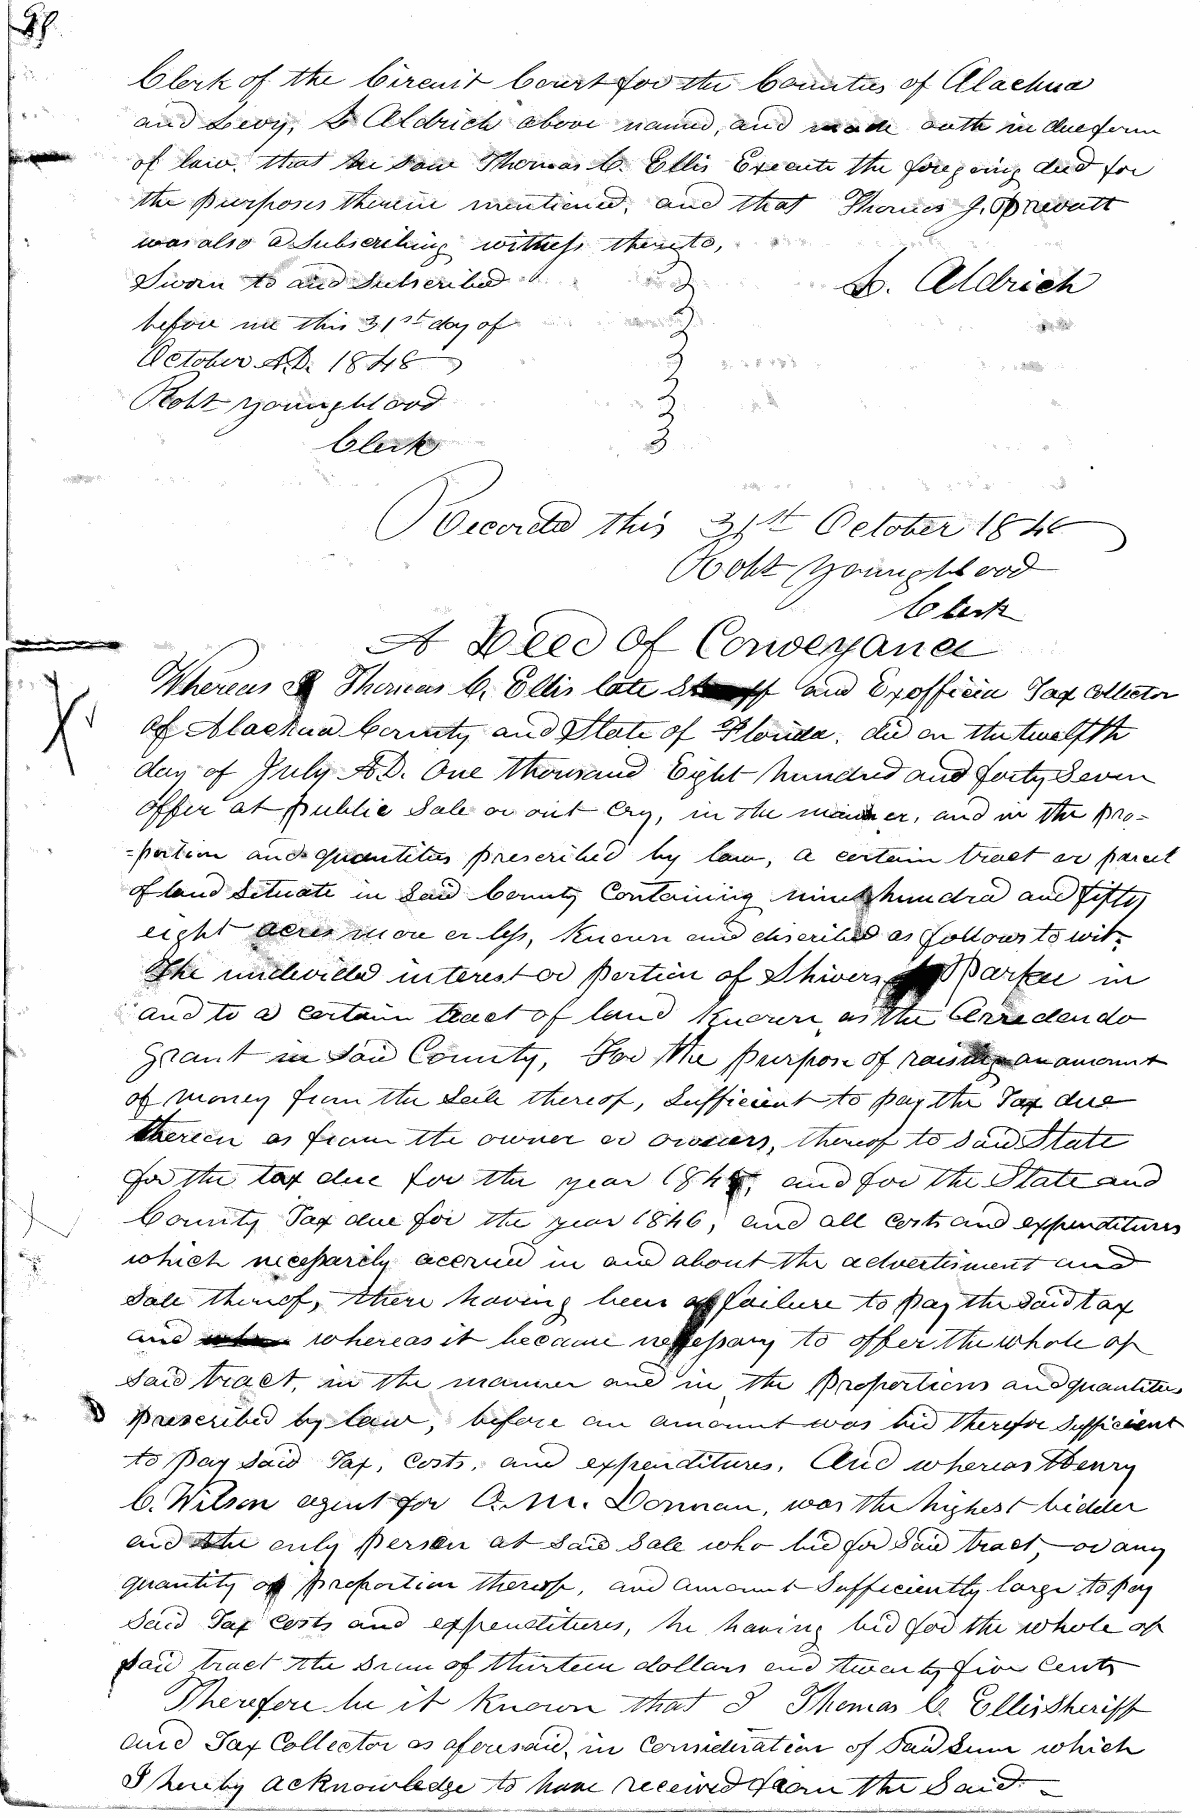 Clerk of the Circuit Court for the Counties of Alachua
and Levy, L Aldrich above named, and made oath in due form
of law. that he saw Thomas C. Ellis Execute the foregoing deed for
the purposes therein mentioned, and that Thomas J. Prevatt
was also a Subscribing witness thereto,
Sworn to and Subscribed
L. Aldrich
before me this 31st day of
October A.D. 1848
Robt Youngblood
Clerk
Recorded this 31st October 1848
Robt Youngblood
Clerk
A Deed Of Conveyance
Whereas I Thomas C. Ellis late Sheriff and Exofficio Tax Collector
of Alachua County and State of Florida. did on the twelfth
day of July A.D. One thousand Eight hundred and forty Seven
offer at public Sale or out cry, in the manner, and in the pro=
=portion and quantities prescribed by law, a certain tract or parcel
of land Situate in Said County Containing nine hundred and fifty
eight acres more or less, Known and discribed as follows to wit.
The undevided interest or portion of Shivers & Parker in
and to a certain tract of land Known as the Arredendo
grant in Said County, For the purpose of raising an amount
of money from the Sale thereof, Sufficient to pay the Tax due
therein as from the owner or owners, thereof to Said State
for the tax due for the year 1845, and for the State and
County Tax due for the year 1846, and all costs and expenditures
which necessarily accrued in and about the advertisment and
Sale thereof, there having been a failure to pay the Said tax
and whereas it became necessary to offer the whole of
Said tract, in the manner and in the proportions and quantities
prescribed by law, before an amount was bid therefor Sufficient
to pay Said Tax, costs, and expenditures. And whereas Henry
C. Wilson agent for O. M. Dorman, was the highest bidder
and the only person at Said Sale who bid for Said tract, or any
quantity or proportion thereof, and amount Sufficiently large to pay
Said Tax costs and expenditures, he having bid for the whole of
Said tract the Sum of thirteen dollars and twenty five Cents
Therefore be it Known that I Thomas C. Ellis Sheriff
and Tax Collector as aforesaid, in consideration of Said Sum which
I hereby acknowledge to have received from the Said